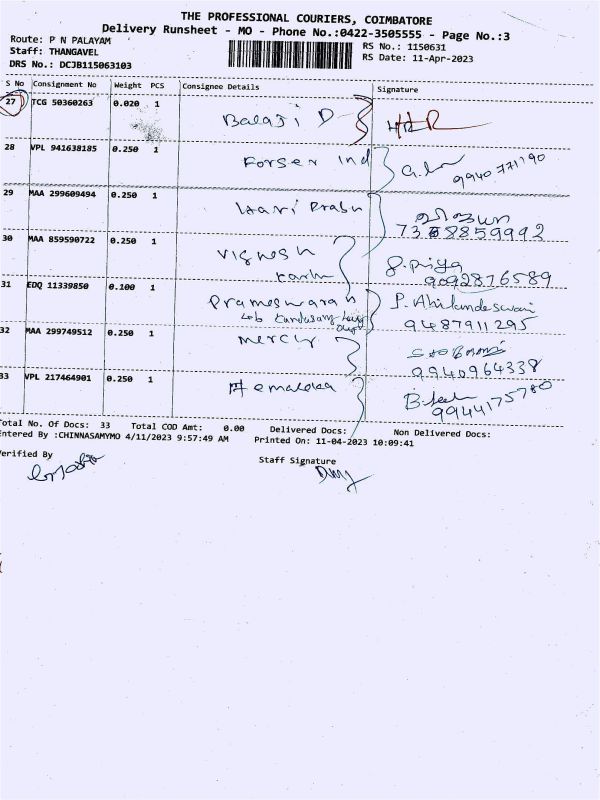 THE PROFESSIONAL COURIERS, COIMBATORE
Delivery Runsheet - MO - Phone No.:0422-3505555 - Page No.:3
Route: P N PALAYAM
Staff: THANGAVEL
DRS No.: DCJB115063103
RS No.: 1150631
RS Date: 11-Apr-2023
S No Consignment No Weight PCS Consignee Details Signature
27 TCG 50360263 0.020 1 Balaji D
28 VPL 941638185 0.250 1 Forser Ind 9940771190
29 MAA 299609494 0.250 1 Hari Prabu
30 MAA 859590722 0.250 1 Vignesh
S. Priya
9092876589
31 EDQ 11339850 0.100 1 Prameswaran P. Abilandeswari
9487911295
32 MAA 299749512 0.250 1 mercy
9940964338
33 VPL 217464901 0.250 1 Hemalatha
9944175780
Total No. Of Docs: 33 Total COD Amt: 0.00 Delivered Docs: Non Delivered Docs:
Entered By :CHINNASAMYMO 4/11/2023 9:57:49 AM Printed On: 11-04-2023 10:09:41
Verified By
Staff Signature